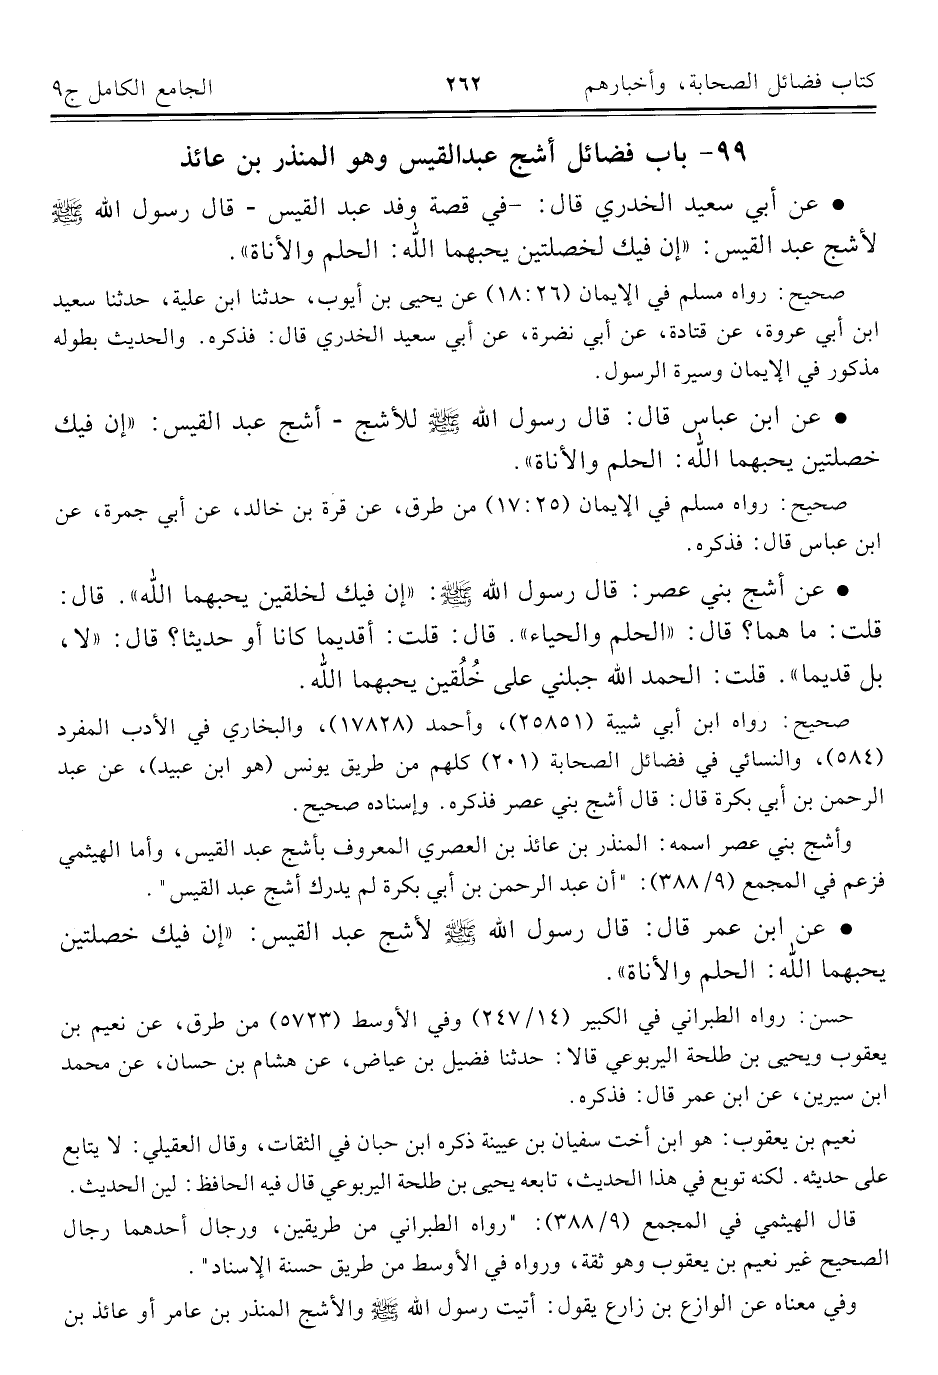 كتاب فضائل الصحابة، وأخبارهم ٢٦٢ الجامع الكامل ج٩
٩٩- باب فضائل أشج عبدالقيس وهو المنذر بن عائذ
● عن أبي سعيد الخدري قال: -في قصة وفد عبد القيس - قال رسول الله ﷺ
لأشج عبد القيس: «إن فيك لخصلتين يحبهما الله: الحلم والأناة».
صحيح: رواه مسلم في الإيمان (١٨:٢٦) عن يحيى بن أيوب، حدثنا ابن علية، حدثنا سعيد
ابن أبي عروة، عن قتادة، عن أبي نضرة، عن أبي سعيد الخدري قال: فذكره. والحديث بطوله
مذكور في الإيمان وسيرة الرسول.
● عن ابن عباس قال: قال رسول الله ﷺ للأشج - أشج عبد القيس: «إن فيك
خصلتين يحبهما الله: الحلم والأناة».
صحيح: رواه مسلم في الإيمان (١٧:٢٥) من طرق، عن قرة بن خالد، عن أبي جمرة، عن
ابن عباس قال: فذكره.
● عن أشج بني عصر: قال رسول الله ﷺ: «إن فيك لخلقين يحبهما الله». قال:
قلت: ما هما؟ قال: «الحلم والحياء». قال: قلت: أقديما كانا أو حديثا؟ قال: «لا،
بل قديما». قلت: الحمد الله جبلني على خُلُقين يحبهما الله.
صحيح: رواه ابن أبي شيبة (٢٥٨٥١)، وأحمد (١٧٨٢٨)، والبخاري في الأدب المفرد
(٥٨٤)، والنسائي في فضائل الصحابة (٢٠١) كلهم من طريق يونس (هو ابن عبيد)، عن عبد
الرحمن بن أبي بكرة قال: قال أشج بني عصر فذكره. وإسناده صحيح.
وأشج بني عصر اسمه: المنذر بن عائذ بن العصري المعروف بأشج عبد القيس، وأما الهيثمي
فزعم في المجمع (٩/ ٣٨٨): "أن عبد الرحمن بن أبي بكرة لم يدرك أشج عبد القيس".
● عن ابن عمر قال: قال رسول الله ﷺ لأشج عبد القيس: «إن فيك خصلتين
يحبهما الله: الحلم والأناة».
حسن: رواه الطبراني في الكبير (١٤/ ٢٤٧) وفي الأوسط (٥٧٢٣) من طرق، عن نعيم بن
يعقوب ويحيى بن طلحة اليربوعي قالا: حدثنا فضيل بن عياض، عن هشام بن حسان، عن محمد
ابن سيرين، عن ابن عمر قال: فذكره.
نعيم بن يعقوب: هو ابن أخت سفيان بن عيينة ذكره ابن حبان في الثقات، وقال العقيلي: لا يتابع
على حديثه. لكنه توبع في هذا الحديث، تابعه يحيى بن طلحة اليربوعي قال فيه الحافظ: لين الحديث.
قال الهيثمي في المجمع (٩/ ٣٨٨): "رواه الطبراني من طريقين، ورجال أحدهما رجال
الصحيح غير نعيم بن يعقوب وهو ثقة، ورواه في الأوسط من طريق حسنة الإسناد".
وفي معناه عن الوازع بن زارع يقول: أتيت رسول الله ﷺ والأشج المنذر بن عامر أو عائذ بن